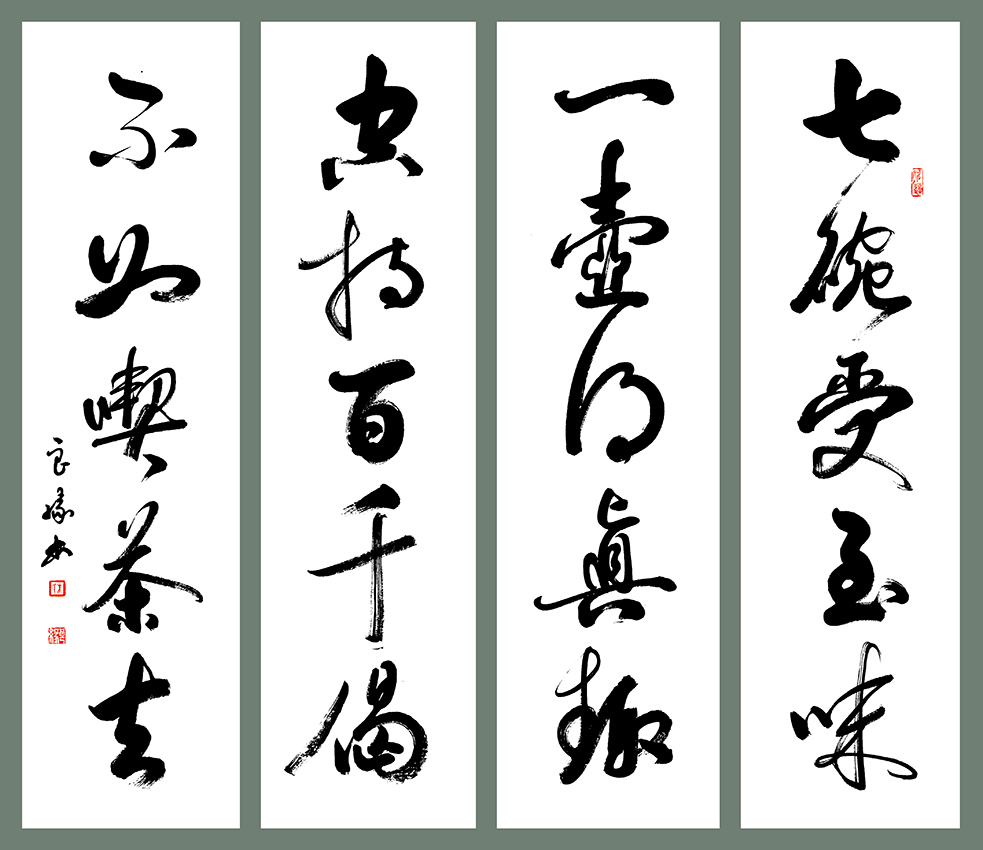 七碗受至味
一壺得真趣
空持百千偈
不如喫茶去
良緣书